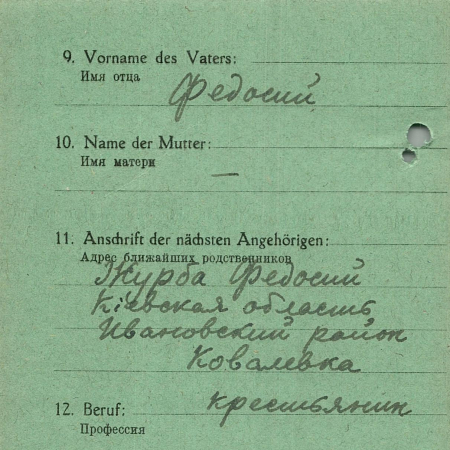 9. Vorname des Vaters:
Имя отца
Федосий
10. Name der Mutter:
Имя матери
—
11. Anschrift der nächsten Angehörigen:
Адрес ближайших родственников
Журба Федосий
Кiевская область
Ивановский район
Ковалевка
12. Beruf: крестьянин
Профессия